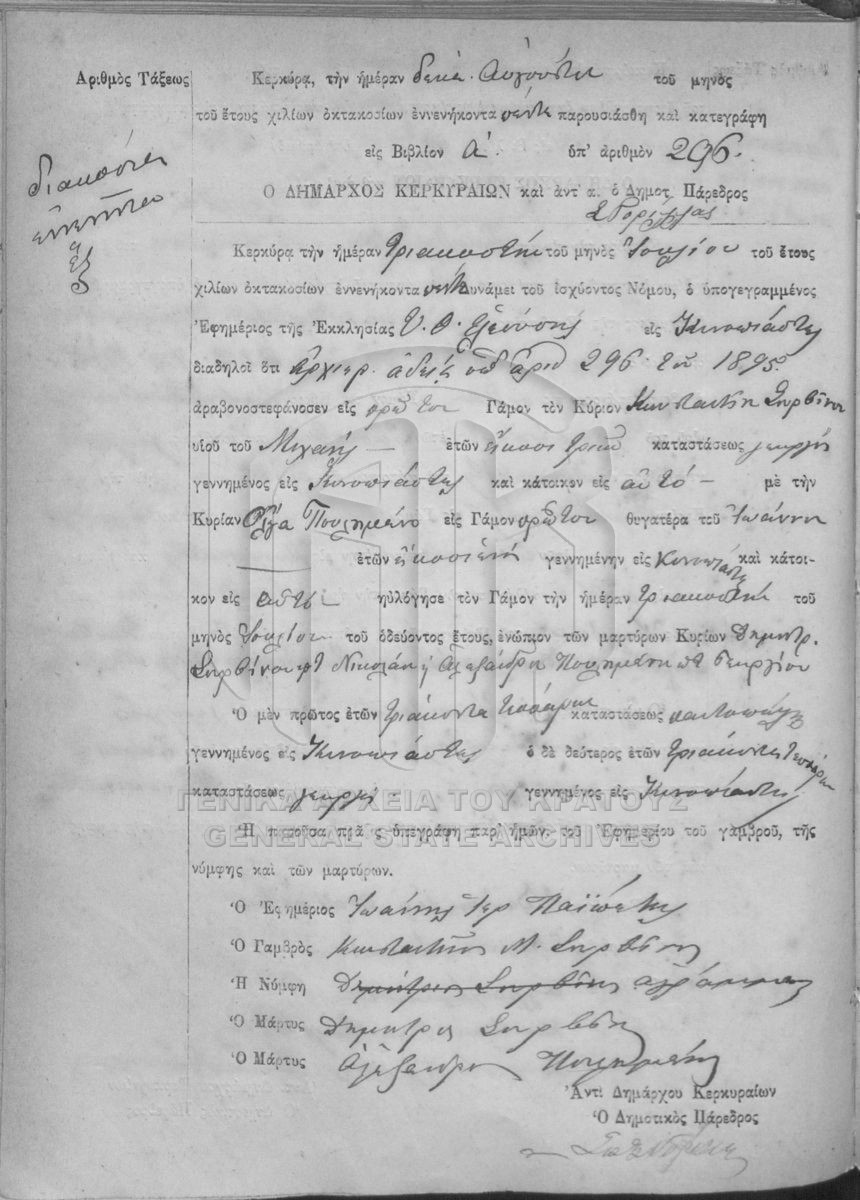 Ἀριθμὸς Τάξεως
διακόσια
ἐννενῆντα
ἕξ
Κερκύρᾳ, τὴν ἡμέραν δεκα Αὐγούστου τοῦ μηνὸς
τοῦ ἔτους χιλίων ὀκτακοσίων ἐννενήκοντα πέντε παρουσιάσθη καὶ κατεγράφη
εἰς Βιβλίον Α' ὑπ' ἀριθμὸν 296.
Ο ΔΗΜΑΡΧΟΣ ΚΕΡΚΥΡΑΙΩΝ καὶ ἀντ' α. ὁ Δημοτ. Πάρεδρος
Κερκύρᾳ τὴν ἡμέραν τριακοστήν τοῦ μηνὸς Ἰουλίου τοῦ ἔτους
χιλίων ὀκτακοσίων ἐννενήκοντα πέντε Δυνάμει τοῦ ἰσχύοντος Νόμου, ὁ ὑπογεγραμμένος
Ἐφημέριος τῆς Ἐκκλησίας Υ. Θ. Ἐλεούσης εἰς Κυνοπιάστες
διαδηλοῖ ὅτι ἀρχιερ. ἀδείᾳ ὑπ' ἀριθ 296 τοῦ 1895
ἀραβονοστεφάνοσεν εἰς πρῶτον Γάμον τὸν Κύριον Κωνσταντῖνον Σκρβίνον
υἱοῦ τοῦ Μιχαήλ — ἐτῶν εἴκοσι τριῶν καταστάσεως γεωργός
γεννημένος εἰς Κυνοπιάστες καὶ κάτοικον εἰς αὐτό — μὲ τὴν
Κυρίαν Ὄλγα Πουλημένο εἰς Γάμον πρῶτον θυγατέρα τοῦ Ἰωάννου
— ἐτῶν εἰκοσιένα γεννημένην εἰς Κυνοπιάστες καὶ κάτοι-
κον εἰς αὐτό ηὐλόγησε τὸν Γάμον τὴν ἡμέραν τριακοστήν τοῦ
μηνὸς Ἰουλίου τοῦ ὁδεύοντος ἔτους, ἐνώπιον τῶν μαρτύρων Κυρίων Δημητρ.
Νικολάου Ἀλεξάνδρου Πουλημένου Γεωργίου
Ὁ μὲν πρῶτος ἐτῶν τριάκοντα τεσσάρων καταστάσεως παντοπώλης
γεννημένος εἰς Κυνοπιάστες ὁ δὲ δεύτερος ἐτῶν τριάκοντα τεσσάρων
καταστάσεως γεωργός γεννημένος εἰς Κυνοπιάστες
ΓΕΝΙΚΑ ΑΡΧΕΙΑ ΤΟΥ ΚΡΑΤΟΥΣ
GENERAL STATE ARCHIVES
Ἡ παροῦσα πρᾶξις ὑπεγράφη παρ' ἡμῶν, τοῦ Ἐφημερίου τοῦ γαμβροῦ, τῆς
νύμφης καὶ τῶν μαρτύρων.
Ὁ Ἐφημέριος Ἰωάννης Ἱερ
Ὁ Γαμβρὸς Κωνσταντῖνος Μ.
Ἡ Νύμφη ἀγράμματος
Ὁ Μάρτυς Δημήτριος
Ὁ Μάρτυς Ἀλέξανδρος Πουλημένος
Ἀντὶ Δημάρχου Κερκυραίων
Ὁ Δημοτικὸς Πάρεδρος